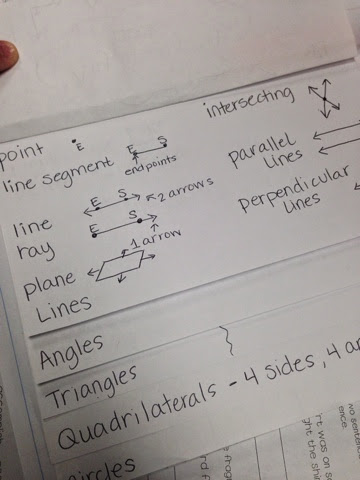 point .E
line segment E S
endpoints
line E S 2 arrows
ray E S
1 arrow
plane
Lines
intersecting
parallel
lines
perpendicular
lines
Angles
Triangles
Quadrilaterals - 4 sides, 4